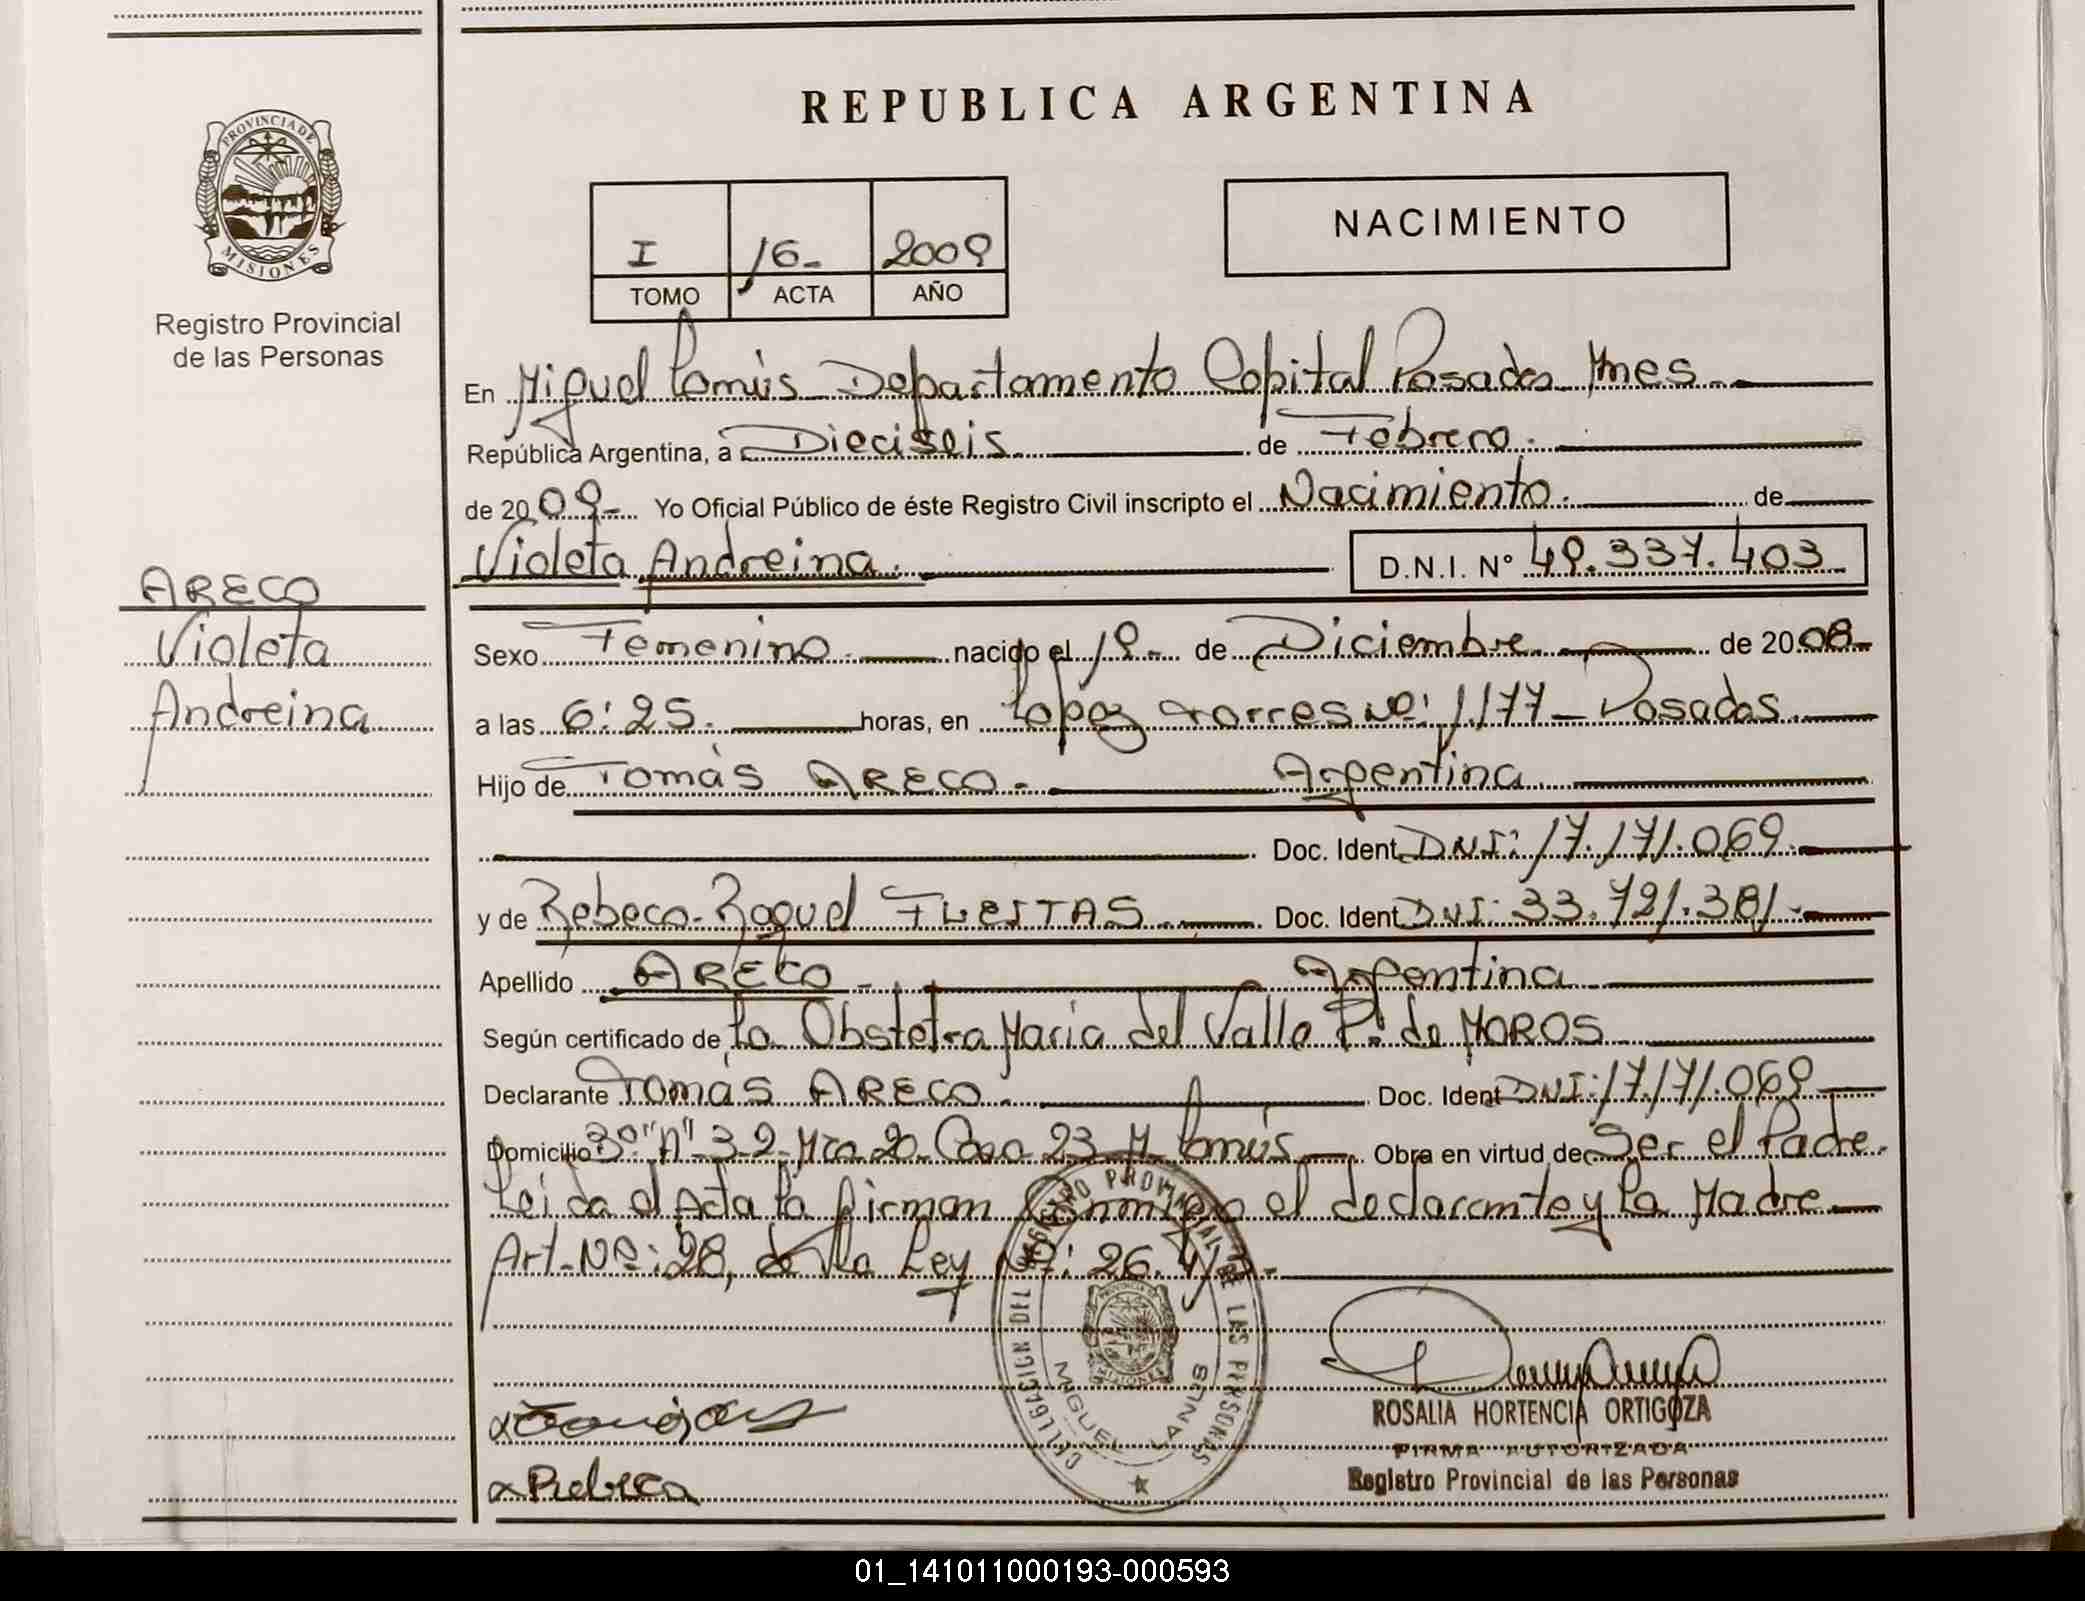 REPUBLICA ARGENTINA
PROVINCIA DE
MISIONES
Registro Provincial
de las Personas
NACIMIENTO
I 16- 2009
TOMO ACTA AÑO
En Miguel Lanús Departamento Capital Posadas Mnes.
República Argentina, a Dieciseis. de Febrero.
de 2009- Yo Oficial Público de éste Registro Civil inscripto el Nacimiento. de
Violeta Andreina. D.N.I. N° 49.337.403
ARECO
Violeta
Andreina
Sexo Femenino. nacido el 19- de Diciembre de 2008-
a las 6:25. horas, en Lopez Torres Nº: 1177- Posadas.
Hijo de Tomás ARECO. Argentina
Doc. Ident DNI: 17.171.069.
y de Rebeca Raquel FLEITAS Doc. Ident DNI: 33.721.381-
Apellido ARECO- Argentina
Según certificado de la Obstetra Maria del Valle P. de MOROS
Declarante Tomás ARECO. Doc. Ident DNI: 17.171.069
Domicilio 3º "A" 32 Mza 20 Casa 23 M. Lanús Obra en virtud de Ser el Padre.
Leida el Acta la firman Conmigo el declarante y la Madre
Art. Nº: 28, de la Ley Nº: 26.
DELEGACION DEL REGISTRO PROVINCIAL DE LAS PERSONAS
MIGUEL LANUS
ROSALIA HORTENCIA ORTIGOZA
FIRMA AUTORIZADA
Registro Provincial de las Personas
Rebeca
01_141011000193-000593